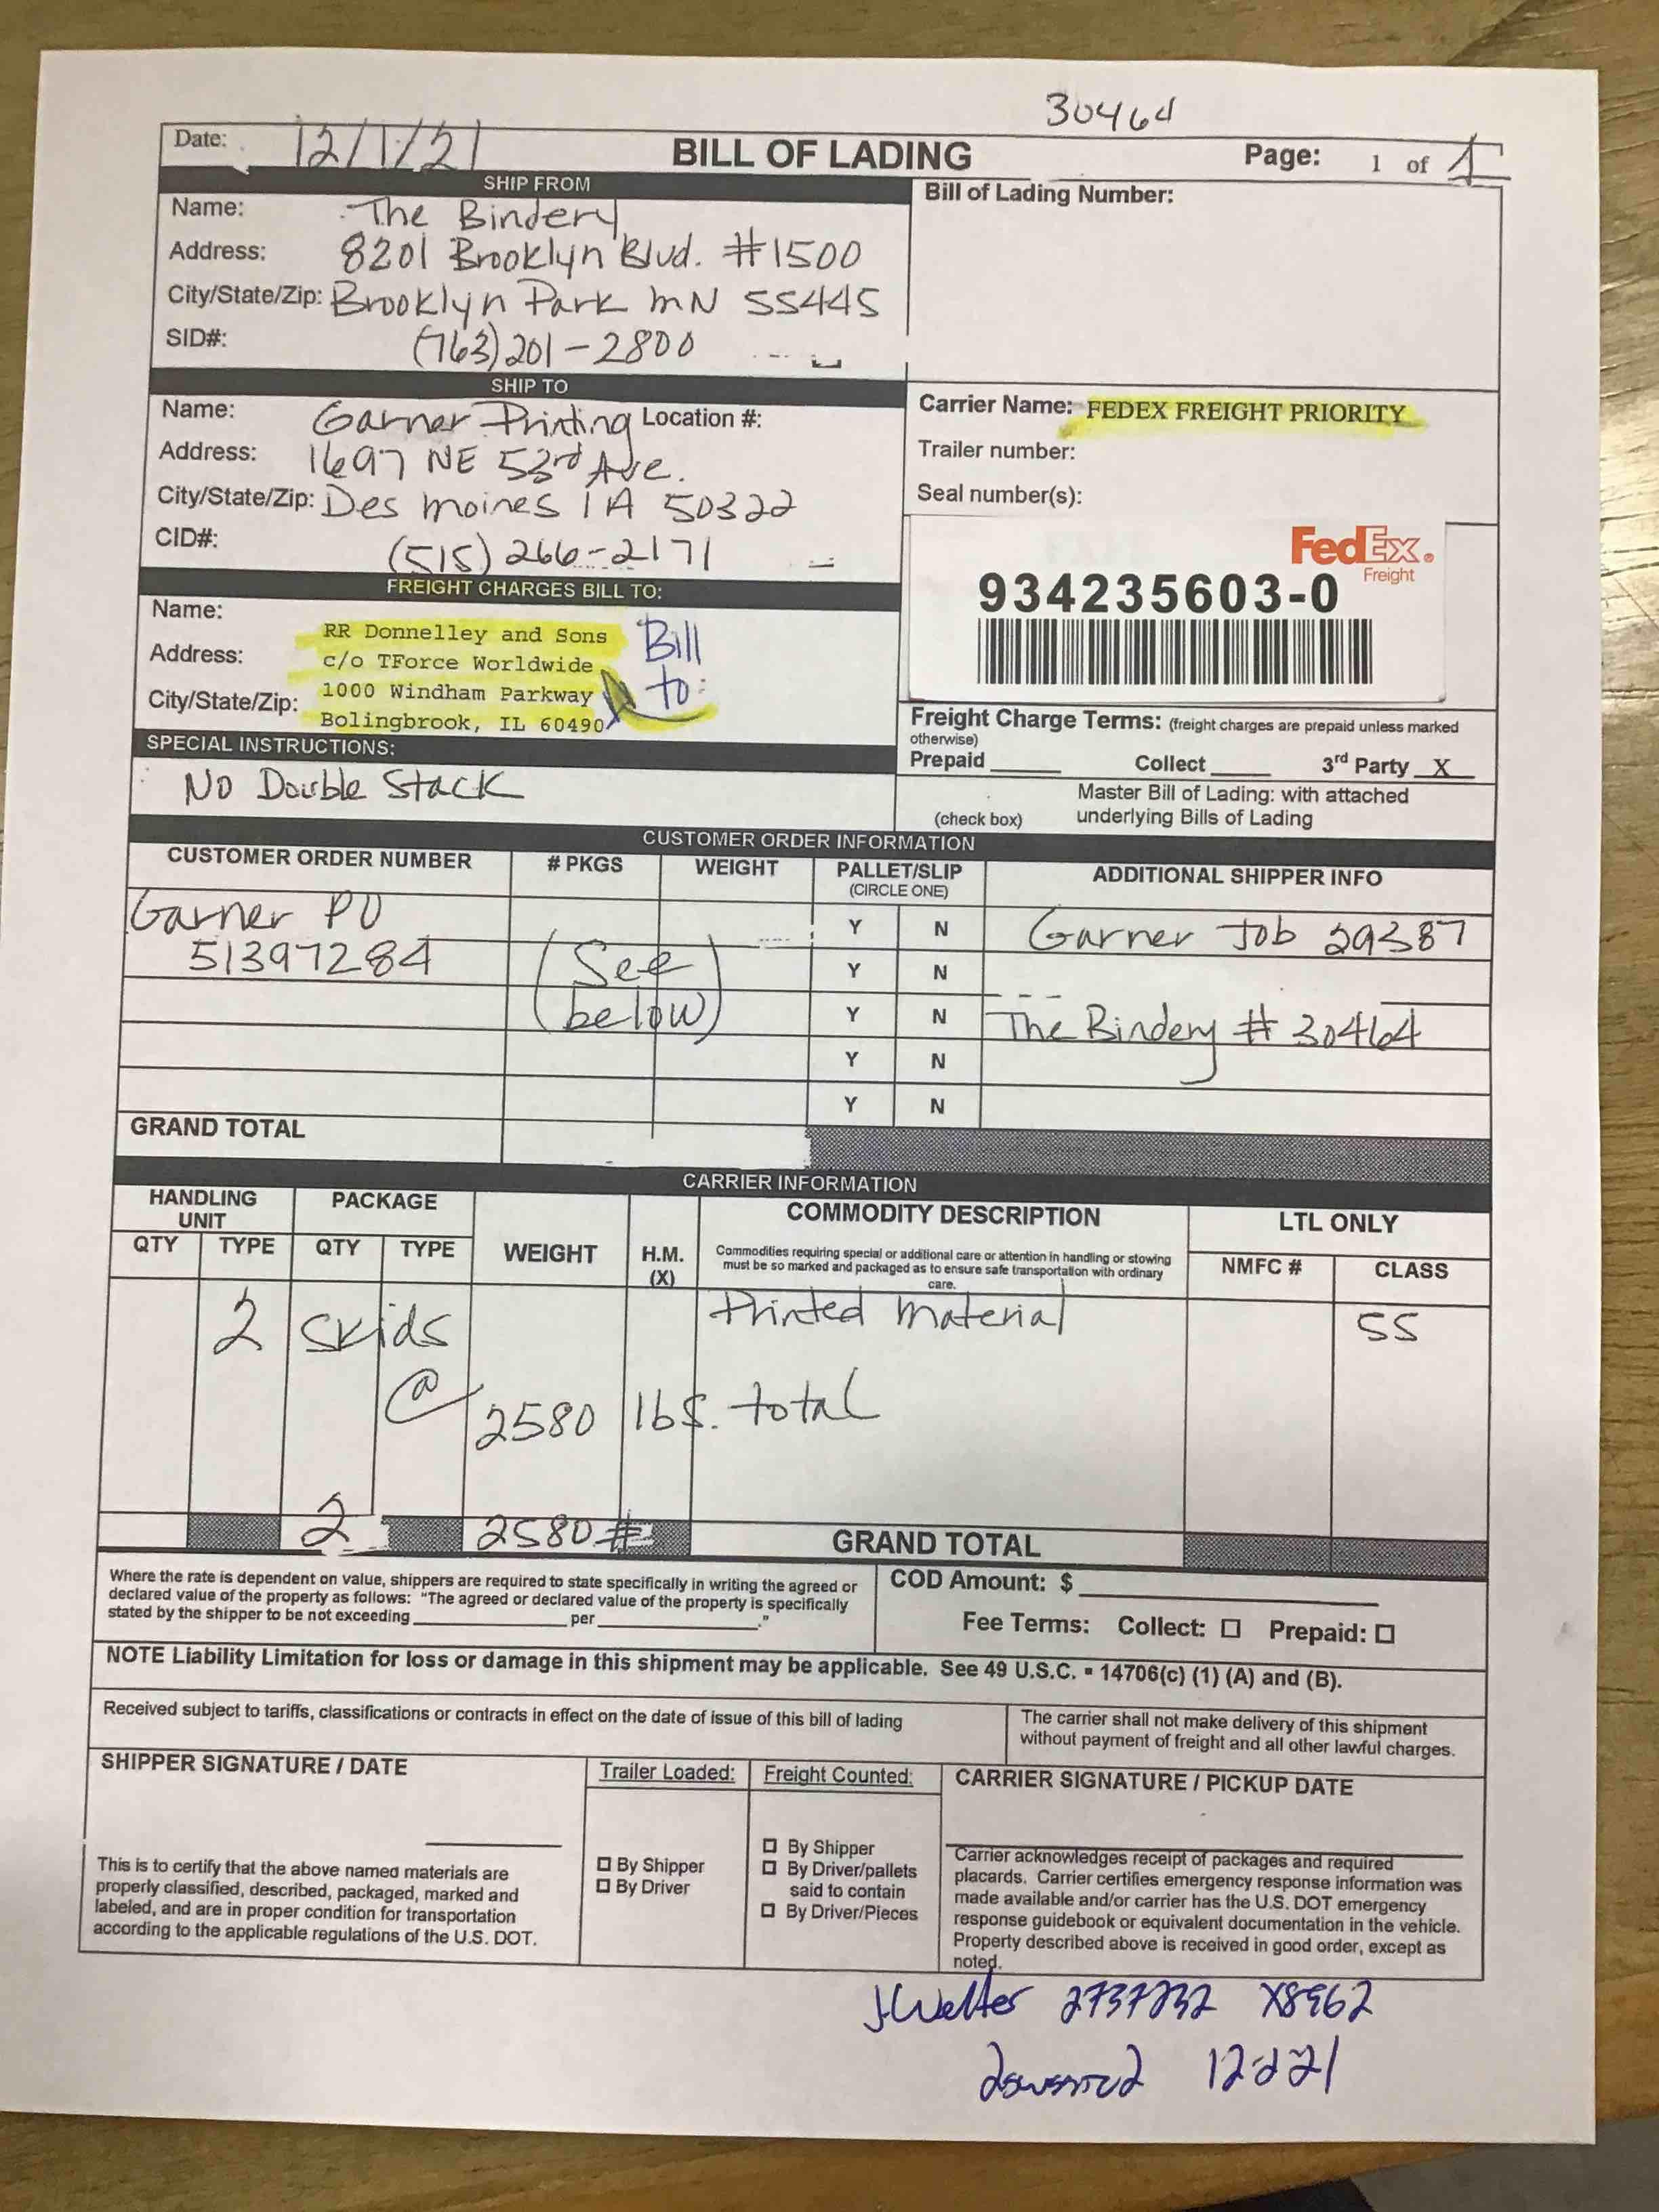 30464
Date: 12/1/21
BILL OF LADING
Page: 1 of 1
SHIP FROM
Name: The Bindery
Address: 8201 Brooklyn Blvd. #1500
City/State/Zip: Brooklyn Park MN 55445
SID#: (763) 201-2800
Bill of Lading Number:
SHIP TO
Name: Garner Printing Location #:
Address: 1697 NE 53rd Ave.
City/State/Zip: Des Moines IA 50322
CID#: (515) 266-2171
Carrier Name: FEDEX FREIGHT PRIORITY
Trailer number:
Seal number(s):
FedEx®
Freight
934235603-0
FREIGHT CHARGES BILL TO:
Name: RR Donnelley and Sons
Address: c/o TForce Worldwide
1000 Windham Parkway
City/State/Zip: Bolingbrook, IL 60490
Bill
to:
Freight Charge Terms: (freight charges are prepaid unless marked
otherwise)
Prepaid Collect 3rd Party X
Master Bill of Lading: with attached
(check box) underlying Bills of Lading
SPECIAL INSTRUCTIONS:
No Double Stack
CUSTOMER ORDER INFORMATION
CUSTOMER ORDER NUMBER # PKGS WEIGHT PALLET/SLIP ADDITIONAL SHIPPER INFO
(CIRCLE ONE)
Garner PO Y N Garner Job 29387
51397284 (See Y N
below) Y N The Bindery # 30464
Y N
Y N
GRAND TOTAL
CARRIER INFORMATION
HANDLING UNIT PACKAGE COMMODITY DESCRIPTION LTL ONLY
QTY TYPE QTY TYPE WEIGHT H.M. (X)
Commodities requiring special or additional care or attention in handling or stowing
must be so marked and packaged as to ensure safe transportation with ordinary
care.
NMFC # CLASS
2 skids Printed Material 55
@ 2580 lbs. total
2 2580# GRAND TOTAL
Where the rate is dependent on value, shippers are required to state specifically in writing the agreed or
declared value of the property as follows: "The agreed or declared value of the property is specifically
stated by the shipper to be not exceeding per ."
COD Amount: $
Fee Terms: Collect: ☐ Prepaid: ☐
NOTE Liability Limitation for loss or damage in this shipment may be applicable. See 49 U.S.C. ▪ 14706(c) (1) (A) and (B).
Received subject to tariffs, classifications or contracts in effect on the date of issue of this bill of lading
The carrier shall not make delivery of this shipment
without payment of freight and all other lawful charges.
SHIPPER SIGNATURE / DATE
This is to certify that the above named materials are
properly classified, described, packaged, marked and
labeled, and are in proper condition for transportation
according to the applicable regulations of the U.S. DOT.
Trailer Loaded:
☐ By Shipper
☐ By Driver
Freight Counted:
☐ By Shipper
☐ By Driver/pallets
said to contain
☐ By Driver/Pieces
CARRIER SIGNATURE / PICKUP DATE
Carrier acknowledges receipt of packages and required
placards. Carrier certifies emergency response information was
made available and/or carrier has the U.S. DOT emergency
response guidebook or equivalent documentation in the vehicle.
Property described above is received in good order, except as
noted.
J. Welter 2737232 X8962
12-2-21